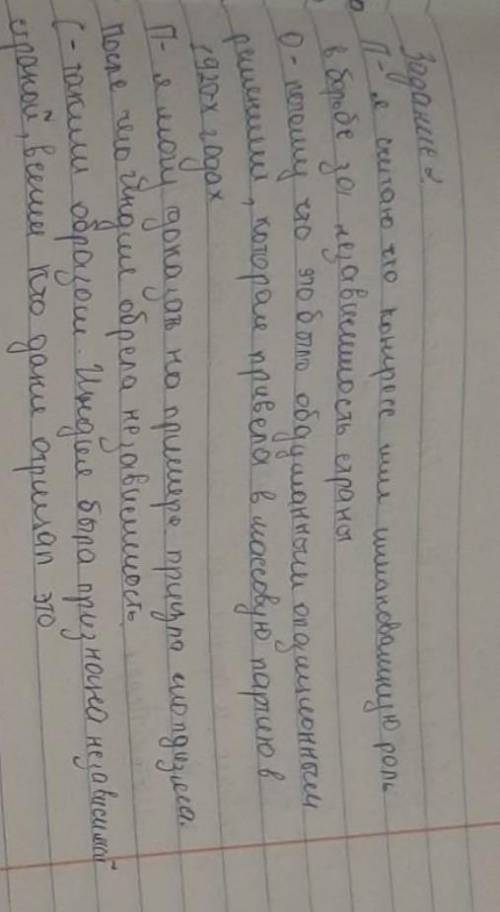 Задание 2
П - я считаю что конгресс имел роль
в борьбе за независимость страны
О - потому что это было обдуманным опдиционным
решением, которая привела в массовую партию в
1920-х годах
П - я могу доказать на примере
После чего Индия обрела независимость
С - таким образом. Индия была признана независимой
страной, всеми кто даже отрицал это